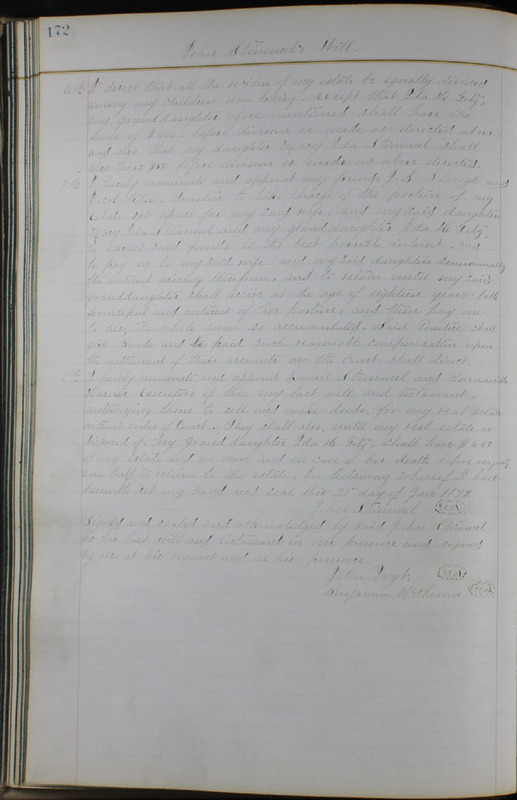 172
John Stimmel's Will
6th I direct that all the residue of my estate be equally divided
among my children now living, except that Ida H. Getz,
my granddaughter above mentioned shall have the
sum of before division is made as directed above
and also that my daughter Mary Ida Stimmel shall
also have before division is made as above directed.
7th I hereby nominate and appoint my friends J. B. and
Trustees to take charge of the portion of my
estate set apart for my said wife, and my said daughter
Mary Ida Stimmel and my granddaughter Ida H. Getz,
to invest said funds to the best possible interest, and
to pay over to my said wife, and my said daughter Semiannually
the interest arising therefrom, and to retain until my said
granddaughter shall arrive at the age of eighteen years both
principal and interest of her portion, and then pay over
to her the whole sum so accumulated. Said Trustees shall
give bonds and be paid such reasonable compensation upon
the settlement of their accounts as the Court shall direct.
8th I hereby nominate and appoint Stimmel and
Executors of this my last will and testament,
authorizing them to sell and make deeds for my real estate
without order of Court. They shall also, until my real estate is
disposed of. My granddaughter Ida H. Getz, shall have
of my estate and no more and in case of her death before
one half to return to the estate. In testimony whereof I have
hereunto set my hand and seal this 25th day of Jany 1877.
John Stimmel
Signed and sealed and acknowledged by said John Stimmel
as his last will and testament in our presence and signed
by us at his request and in his presence
John
Benjamin